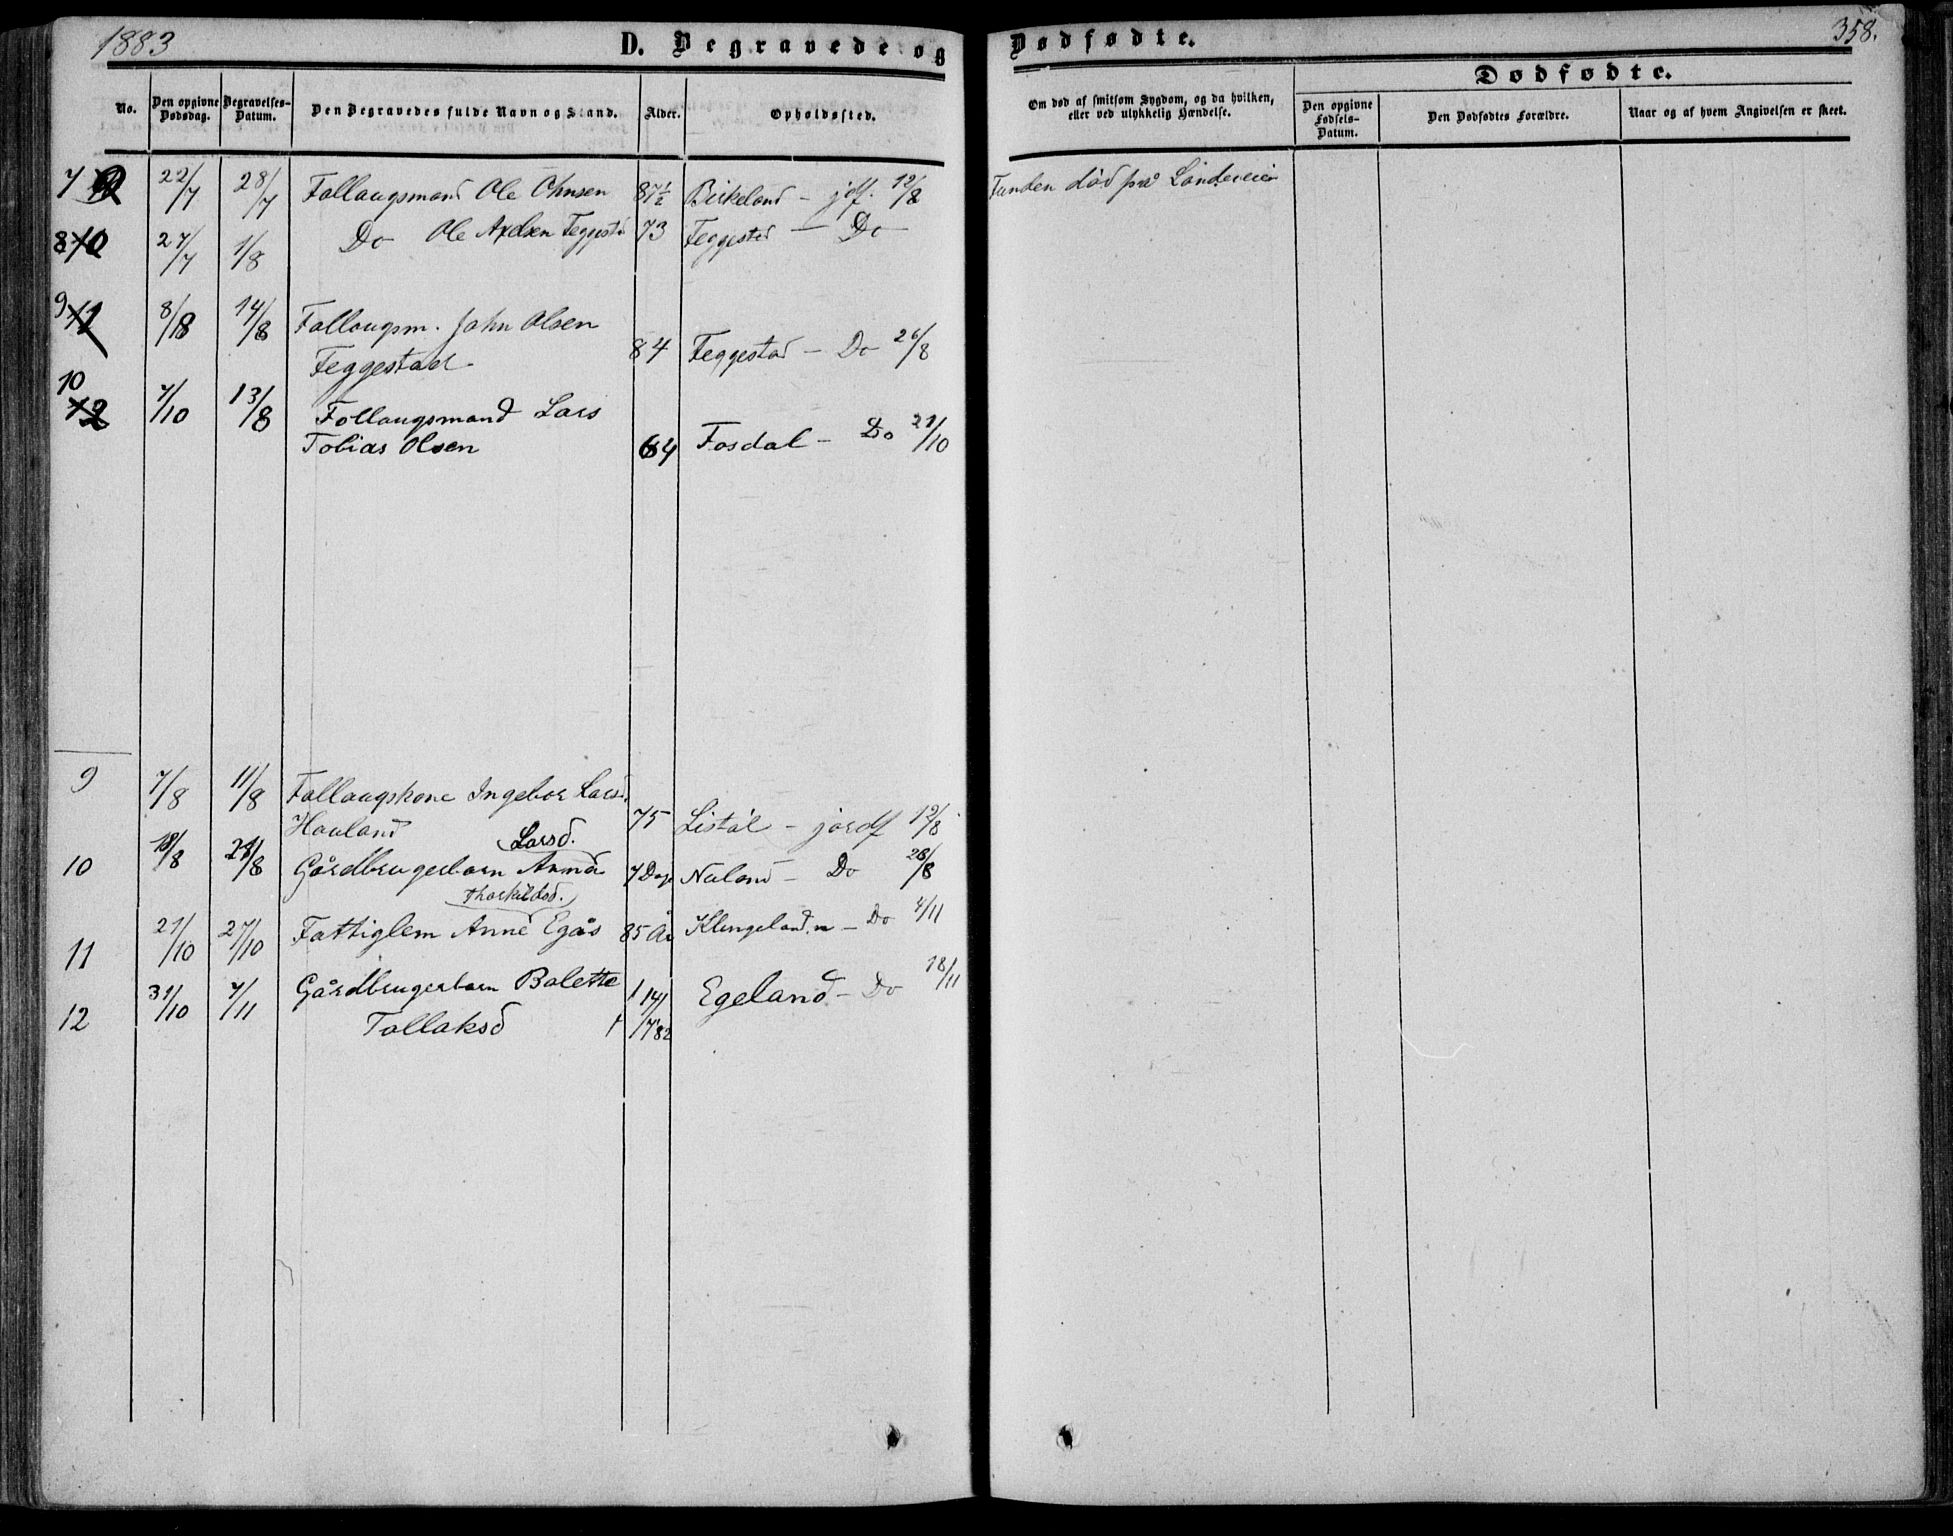 1883
D. Begravede og Dødfødte.
358.
No. Den opgivne Dødsdag. Begravelses-Datum. Den Begravedes fulde Navn og Stand. Alder. Opholdssted.
Om død af smitsom Sygdom, og da hvilken, eller ved ulykkelig Hændelse.
Dødfødte.
Den opgivne Fødsels-Datum. Den Dødfødtes Forældre. Naar og af hvem Angivelsen er skeet.
7 22/7 28/7 Follaugsmand Ole Ohnsen 87½ Birkeland - jdf. 12/8 Funden död på
8 10 27/7 1/8 Do Ole Axelsen Feggestad 73 Feggestad - Do
9 11 8/8 14/8 Follaugsm. John Olsen
Feggestad 84 Feggestad - Do 26/8
10 12 7/10 13/8 Follaugsmand Lars
Tobias Olsen 64 Fosdal - Do 21/10
9 7/8 11/8 Follaugskone Ingebor Larsd.
Hauland 75 Listöl - jordf 12/8
Larsd.
10 18/8 21/8 Gårdbrugerbarn Anna 7 Dage Naland - Do 26/8
Thorkildsd.
11 21/10 27/10 Fattiglem Anne Egås 85 År Klingeland - Do 4/11
12 31/10 7/11 Gårdbrugerbarn Bolette Egeland - Do 18/11
Tollaksd 14/7 82